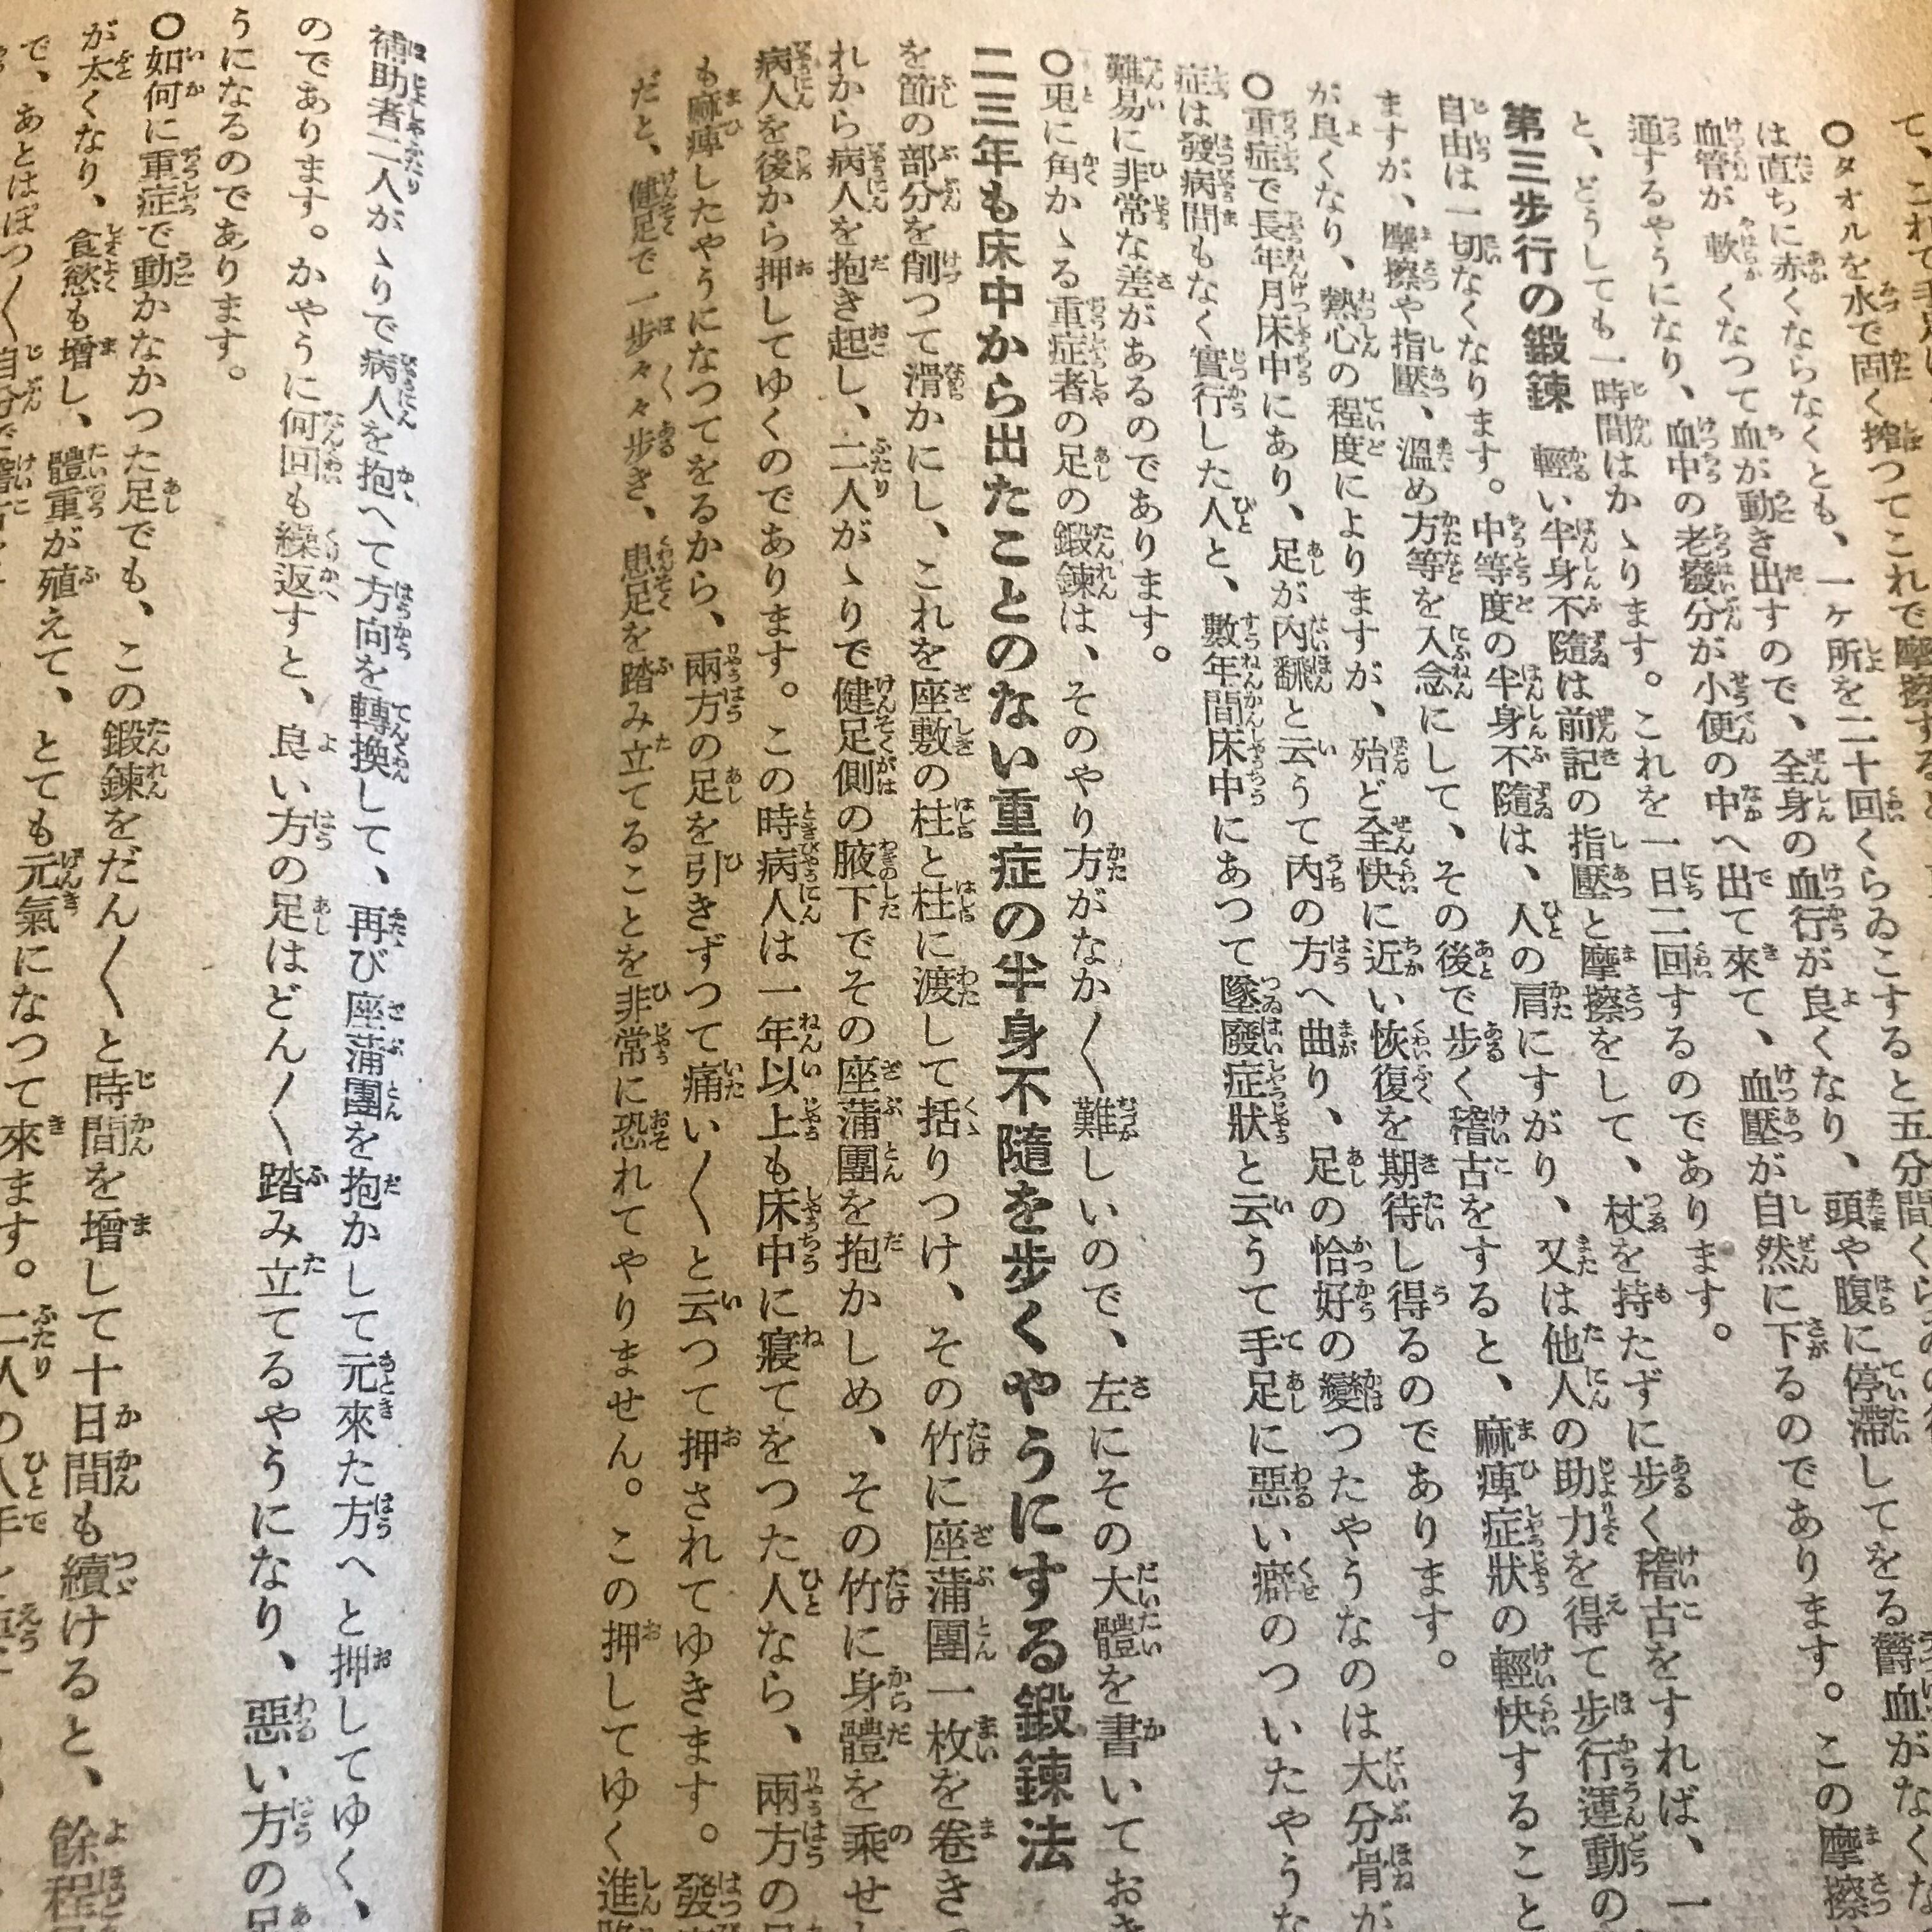 ○タオルを水で固く搾つてこれで摩擦すると
は直ちに赤くならなくとも、一ヶ所を二十回くらゐこすると五分間くら
血管が軟くなつて血が動き出すので、全身の血行が良くなり、頭や腹に停滯してをる欝血がなくな
通するやうになり、血中の老廢分が小便の中へ出て來て、血壓が自然に下るのであります。この摩擦
と、どうしても一時間はかゝります。これを一日二回するのであります。
第三步行の鍛鍊 輕い半身不隨は前記の指壓と摩擦をして、杖を持たずに步く稽古をすれば、一
自由は一切なくなります。中等度の半身不隨は、人の肩にすがり、又は他人の助力を得て步行運動の
ますが、摩擦や指壓、溫め方等を入念にして、その後で步く稽古をすると、麻痺症狀の輕快すること
が良くなり、熱心の程度によりますが、殆ど全快に近い恢復を期待し得るのであります。
○重症で長年月床中にあり、足が內飜と云うて內の方へ曲り、足の恰好の變つたやうなのは大分骨が
症は發病間もなく實行した人と、數年間床中にあつて墜廢症狀と云うて手足に惡い癖のついたやうな
難易に非常な差があるのであります。
○兎に角かゝる重症者の足の鍛鍊は、そのやり方がなか〱難しいので、左にその大體を書いておき
二三年も床中から出たことのない重症の半身不隨を步くやうにする鍛鍊法
を節の部分を削つて滑かにし、これを座敷の柱と柱に渡して括りつけ、その竹に座蒲團一枚を卷きつ
れから病人を抱き起し、二人がゝりで健足側の腋下でその座蒲團を抱かしめ、その竹に身體を乘せし
病人を後から押してゆくのであります。この時病人は一年以上も床中に寢てをつた人なら、兩方の足
も麻痺したやうになつてをるから、兩方の足を引きずつて痛い〱と云つて押されてゆきます。發
だと、健足で一步々々步き、患足を踏み立てることを非常に恐れてやりません。この押してゆく進
補助者二人がゝりで病人を抱へて方向を轉換して、再び座蒲團を抱かして元來た方へと押してゆく、
のであります。かやうに何回も繰返すと、良い方の足はどん〱踏み立てるやうになり、惡い方の足
うになるのであります。
○如何に重症で動かなかつた足でも、この鍛鍊をだん〱と時間を增して十日間も續けると、餘程
が太くなり、食慾も增し、體重が殖えて、とても元氣になつて來ます。二人の
で、あとはぽつ〱自分で